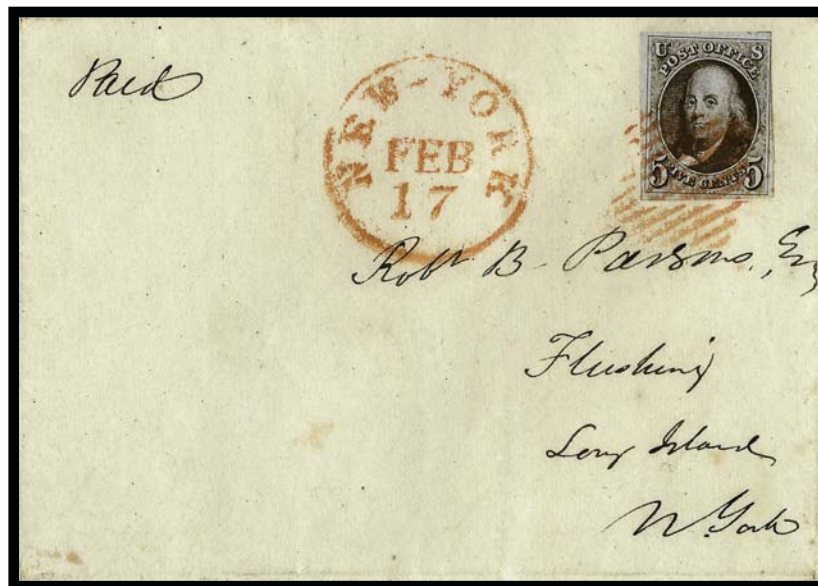 Paid
NEW-YORK
FEB
17
U S
POST OFFICE
5 FIVE CENTS 5
Robt. B. Parsons, Esq
Flushing
Long Island
N. York